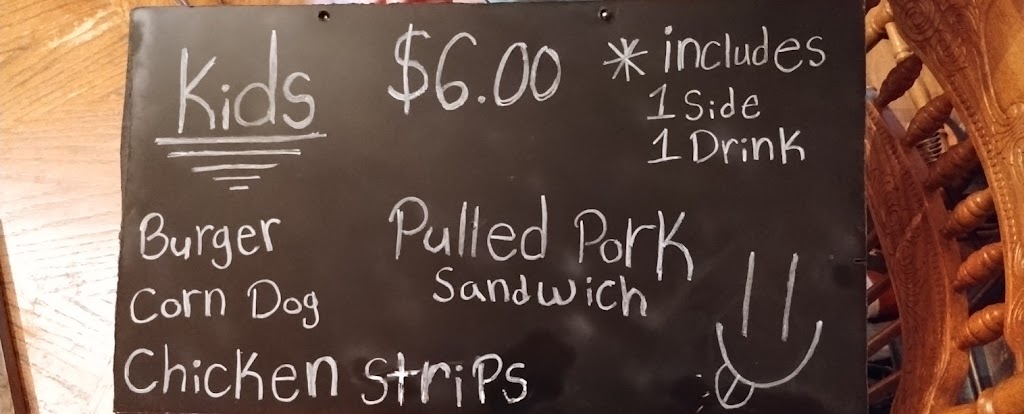 Kids $6.00 * includes
1 Side
1 Drink
Burger
Corn Dog
Chicken Strips
Pulled Pork
Sandwich